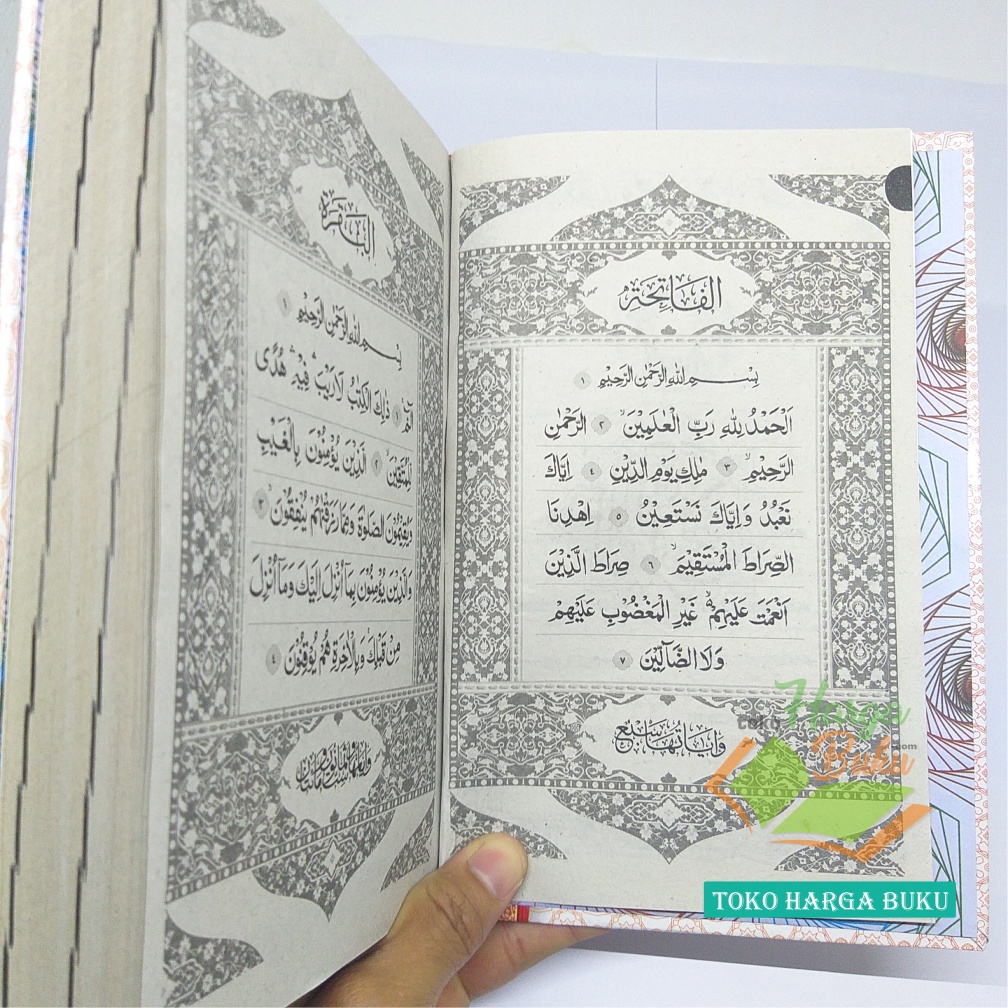 الفاتحة
بِسْمِ اللهِ الرَّحْمٰنِ الرَّحِيْمِ ١
اَلْحَمْدُ لِلّٰهِ رَبِّ الْعٰلَمِيْنَۙ ٢ الرَّحْمٰنِ
الرَّحِيْمِۙ ٣ مٰلِكِ يَوْمِ الدِّيْنِۗ ٤ اِيَّاكَ
نَعْبُدُ وَاِيَّاكَ نَسْتَعِيْنُۗ ٥ اِهْدِنَا
الصِّرَاطَ الْمُسْتَقِيْمَۙ ٦ صِرَاطَ الَّذِيْنَ
اَنْعَمْتَ عَلَيْهِمْ ەۙ غَيْرِ الْمَغْضُوْبِ عَلَيْهِمْ
وَلَا الضَّاۤلِّيْنَ ٧
وآياتها سبع
البقرة
بِسْمِ اللهِ الرَّحْمٰنِ الرَّحِيْمِ
الۤمّۤۚ ١ ذٰلِكَ الْكِتٰبُ لَا رَيْبَۛ فِيْهِۛ هُدًى
لِّلْمُتَّقِيْنَۙ ٢ الَّذِيْنَ يُؤْمِنُوْنَ بِالْغَيْبِ
وَيُقِيْمُوْنَ الصَّلٰوةَ وَمِمَّا رَزَقْنٰهُمْ يُنْفِقُوْنَۙ ٣
وَالَّذِيْنَ يُؤْمِنُوْنَ بِمَآ اُنْزِلَ اِلَيْكَ وَمَآ اُنْزِلَ
مِنْ قَبْلِكَۚ وَبِالْاٰخِرَةِ هُمْ يُوْقِنُوْنَۗ ٤
toko Harga
Buku .com
TOKO HARGA BUKU